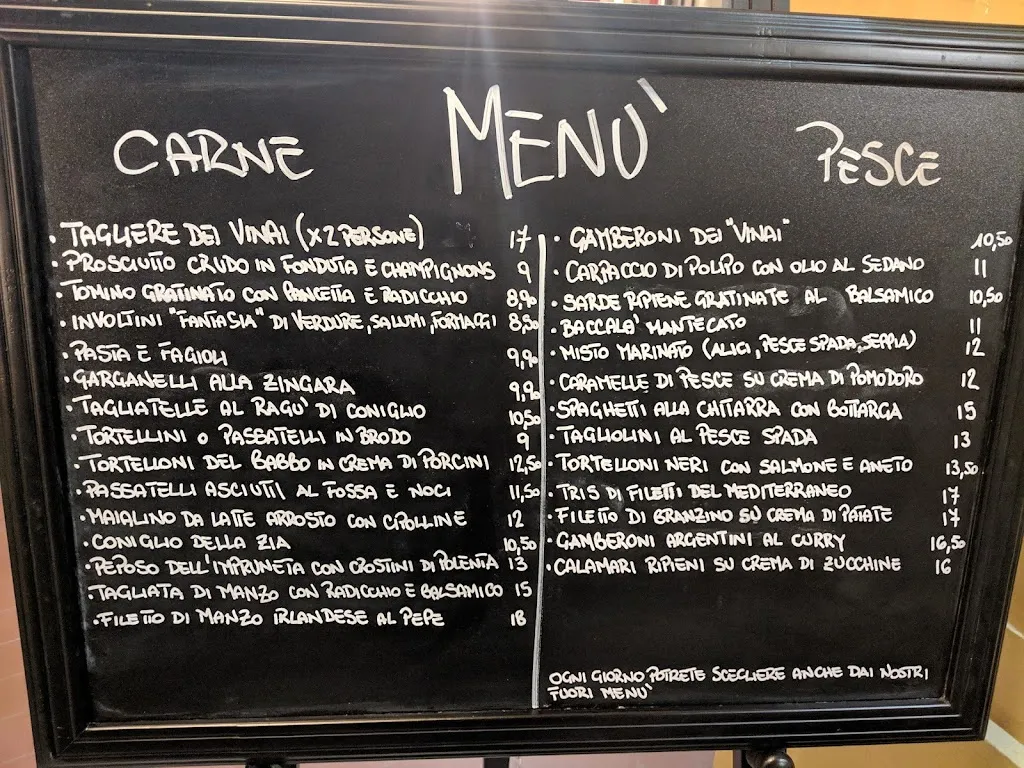 MENU'
CARNE
TAGLIERE DEI VINAI (X2 PERSONE) 17
PROSCIUTTO CRUDO IN FONDUTA E CHAMPIGNONS 9
TOMINO GRATINATO CON PANCETTA E RADICCHIO 8,90
INVOLTINI "FANTASIA" DI VERDURE, SALUMI, FORMAGGI 8,50
PASTA E FAGIOLI 9,90
GARGANELLI ALLA ZINGARA 9,90
TAGLIATELLE AL RAGU' DI CONIGLIO 10,50
TORTELLINI O PASSATELLI IN BRODO 9
TORTELLONI DEL BABBO IN CREMA DI PORCINI 12,50
PASSATELLI ASCIUTTI AL FOSSA E NOCI 11,50
MAIALINO DA LATTE ARROSTO CON CIPOLLINE 12
CONIGLIO DELLA ZIA 10,50
PEPOSO DELL'IMPRUNETA CON CROSTINI DI POLENTA 13
TAGLIATA DI MANZO CON RADICCHIO E BALSAMICO 15
FILETTO DI MANZO IRLANDESE AL PEPE 18
PESCE
GAMBERONI DEI "VINAI" 10,50
CARPACCIO DI POLIPO CON OLIO AL SEDANO 11
SARDE RIPIENE GRATINATE AL BALSAMICO 10,50
BACCALA' MANTECATO 11
MISTO MARINATO (ALICI, PESCE SPADA, SEPPIA) 12
CARAMELLE DI PESCE SU CREMA DI POMODORO 12
SPAGHETTI ALLA CHITARRA CON BOTTARGA 15
TAGLIOLINI AL PESCE SPADA 13
TORTELLONI NERI CON SALMONE E ANETO 13,50
TRIS DI FILETTI DEL MEDITERRANEO 17
FILETTO DI BRANZINO SU CREMA DI PATATE 17
GAMBERONI ARGENTINI AL CURRY 16,50
CALAMARI RIPIENI SU CREMA DI ZUCCHINE 16
OGNI GIORNO POTRETE SCEGLIERE ANCHE DAI NOSTRI
FUORI MENU'